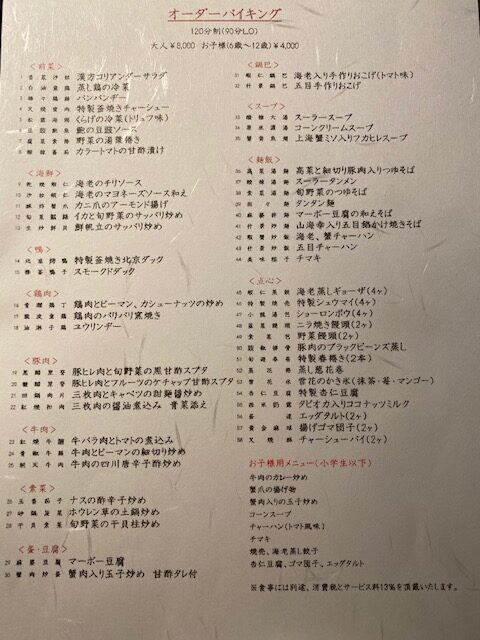 オーダーバイキング
120分制(90分L.O)
大人￥8,000 お子様(6歳～12歳)￥4,000
＜前菜＞
1 漢方コリアンダーサラダ
2 蒸し鶏の冷菜
3 バンバンヂー
4 特製釜焼きチャーシュー
5 くらげの冷菜(トリュフ味)
6 鮑の豆豉ソース
7 野菜の湯葉巻き
8 カラートマトの甘酢漬け
＜海鮮＞
9 乾焼蝦仁 海老のチリソース
10 海老のマヨネーズソース和え
11 カニ爪のアーモンド揚げ
12 イカと旬野菜のサッパリ炒め
13 鮮帆立のサッパリ炒め
＜鴨＞
14 北京烤鴨 特製釜焼き北京ダック
15 スモークドダック
＜鶏肉＞
16 鶏肉とピーマン、カシューナッツの炒め
17 鶏肉のパリパリ窯焼き
18 油淋子鶏 ユウリンヂー
＜豚肉＞
19 豚ヒレ肉と旬野菜の黒甘酢スブタ
20 豚ヒレ肉とフルーツのケチャップ甘酢スブタ
21 回鍋肉片 三枚肉とキャベツの甜麺醤炒め
22 紅焼扣肉 三枚肉の醤油煮込み 青菜添え
＜牛肉＞
23 紅焼牛腩 牛バラ肉とトマトの煮込み
24 青椒牛絲 牛肉とピーマンの細切り炒め
25 牛肉の四川唐辛子酢炒め
＜素菜＞
26 ナスの酸辛子炒め
27 ホウレン草の土鍋炒め
28 干貝素菜 旬野菜の干貝柱炒め
＜蛋・豆腐＞
29 麻婆豆腐 マーボー豆腐
30 蟹肉炒蛋 蟹肉入り玉子炒め 甘酢タレ付
＜鍋巴＞
31 蝦仁鍋巴 海老入り手作りおこげ(トマト味)
32 什景鍋巴 五目手作りおこげ
＜スープ＞
33 酸辣大湯 スーラースープ
34 コーンクリームスープ
35 上海蟹ミソ入りフカヒレスープ
＜麺飯＞
36 高菜と細切り豚肉入りつゆそば
37 酸辣湯麺 スーラータンメン
38 旬野菜のつゆそば
39 担々麺 タンダン麺
40 マーボー豆腐の和えそば
41 什景炒麺 山海幸入り五目餡かけ焼きそば
42 海老、蟹チャーハン
43 什景炒飯 五目チャーハン
44 チマキ
＜点心＞
45 海老蒸しギョーザ(4ヶ)
46 特製焼売 特製シュウマイ(4ヶ)
47 小籠湯包 ショーロンポウ(4ヶ)
48 ニラ焼き饅頭(2ヶ)
49 野菜饅頭(2ヶ)
50 豚肉のブラックビーンズ蒸し
51 特製春捲き(2本)
52 蒸し葱花巻
53 雪花のかき氷(抹茶・苺・マンゴー)
54 杏仁豆腐 特製杏仁豆腐
55 タピオカ入りココナッツミルク
56 蛋達 エッグタルト(2ヶ)
57 揚げゴマ団子(2ヶ)
58 チャーシューパイ(2ヶ)
お子様用メニュー(小学生以下)
牛肉のカレー炒め
蟹爪の揚げ物
蟹肉入りの玉子炒め
コーンスープ
チャーハン(トマト風味)
チマキ
焼売、海老蒸し餃子
杏仁豆腐、ゴマ団子、エッグタルト
※食事には別途、消費税とサービス料13%を頂戴いたします。